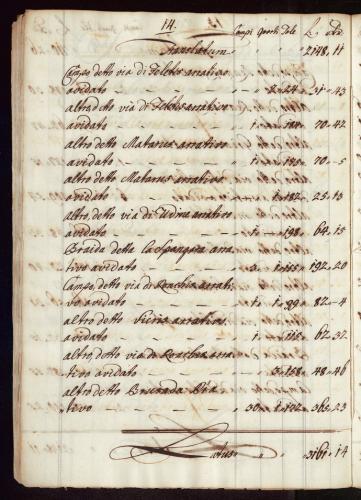 14.
Campi Quarti Tole L. Dri
Translatum 2148. 11
Campo detto via di Felches arrativo
avidato 2. 27 31. 43
altro, detto via di Felches arrativo
avidato 1. 184 70. 42
altro detto Matarus arrativo
avidato 1. 115 70. 5
altro detto Matarus arrativo
avidato 1. 182 25. 13
altro, detto via di Udine arrativo
avidato 1. 198 64. 15
Braida detta arra
tivo avidato 3. 192. 20
Campo, detto via di Ronchis arrati
vo avidato 1. 39 82. 4
altro detto arrativo
avidato 1. 115 62. 32
altro, detto via di Ronchis arra
tivo avidato 3. 158 48. 46
altro detto
tivo 30. 1. 102 365. 23
Latus 3161. 14